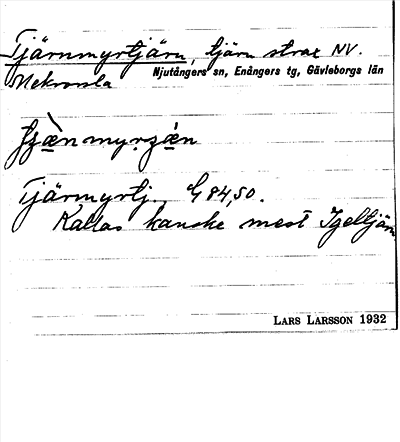 Tjärnmyrtjärn, tjärn strax NV.
Njutångers sn, Enångers tg, Gävleborgs län
Tjärmyrtj., 84,50.
Kallas kanske mest Igeltjärn
LARS LARSSON 1932